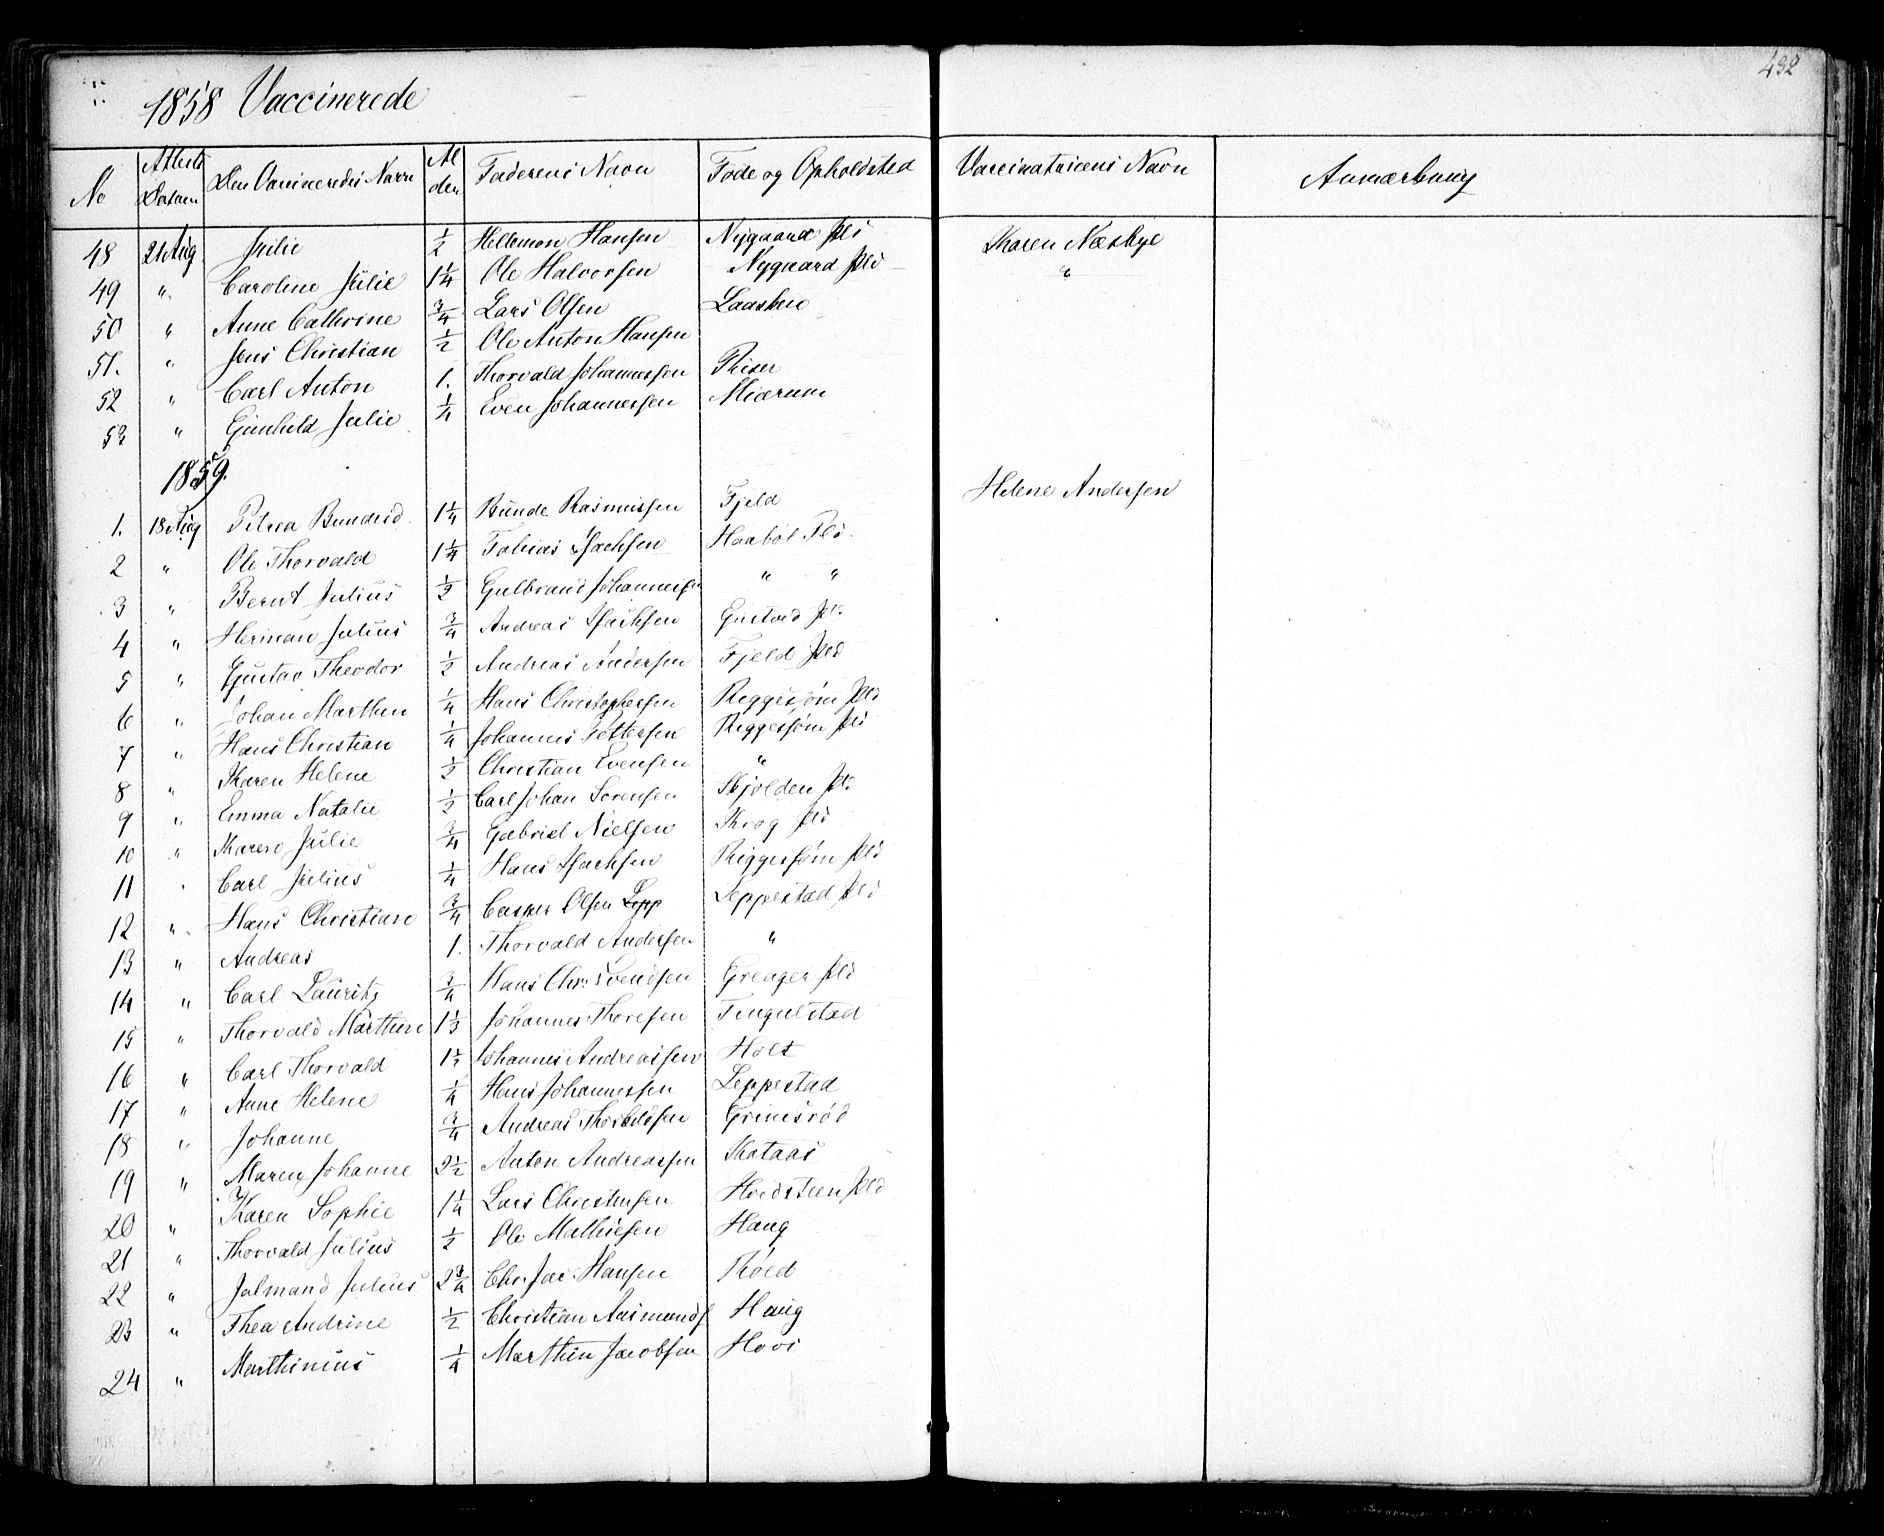 432
1858 Vaccinerede
No Attests Datum Den Vaccineredes Navn Alder Faderens Navn Føde og Opholdsted Vaccinatricens Navn Anmærkning
48 21 Aug Julie 1/2 Hellemon Hansen Nygaard Pls Karen Næsbye
49 " Caroline Julie 1 1/4 Ole Halvorsen Nygaard Pld "
50 " Anne Cathrine 3/4 Lars Olsen
51. " Jens Christian 1/2 Ole Anton Hansen
52 " Carl Anton 1. Thorvald Johannesen Riser
53 " Gunhild Julie 1/4 Even Johannessen Miærum
1859.
1. 18 Aug Petrea 1 1/4 Bunde Rasmussen Fjeld Helene Andersen
2 " Ole Thorvald 1 1/4 Tobias Isachsen Haabøl Pld.
3 " Bernt Julius 1/2 Gulbrand Johannesen " "
4 " Herman Julius 3/4 Andreas Isachsen Pld.
5 " Gustav Theodor 1/2 Andreas Andersen Fjeld Pld
6 " Johan Marthin 1/4 Hans Christophersen Riggesjøm Pld
7 " Hans Christian 1/4 Johannes Pettersen Riggesjøm Pld
8 " Karen Helene 1/2 Christian Evensen "
9 " Emma Natalie 1/2 Carl Johan Sørensen Skjolden Pld
10 " Karen Julie 3/4 Gabriel Nielsen Krog Pld
11 " Carl Julius 1/4 Hans Isachsen Riggesjøm Pld
12 " Hans Christian 3/4 Casper Olsen Lepp Leppestad Pld
13 " Andreas 1. Thorvald Andersen "
14 " Carl Lauritz 3/4 Hans Chr. Svendsen Greager Pld
15 " Thorvald Marthin 1 1/3 Johannes Thoresen Tengelstad
16 " Carl Thorvald Johannes Andreassen Holt
17 " Anne Helene 1/4 Hans Johannessen Leppestad
18 " Johanne 3/4 Andreas Thorkildsen Grimsrød
19 " Maren Johanne 2 1/2 Anton Andreassen Kataas
20 " Karen Sophie 1 1/4 Lars Christensen Hvidsteen Pld
21 " Thorvald Julius 1/2 Ole Mathisen Haug
22 " Jalmand Julius 2 3/4 Chr. Jac. Hansen Røed
23 " Thea Andrine 1/2 Christian Aasmunds Haug
24 " Marthinius 1/4 Marthin Jacobsen Hovi